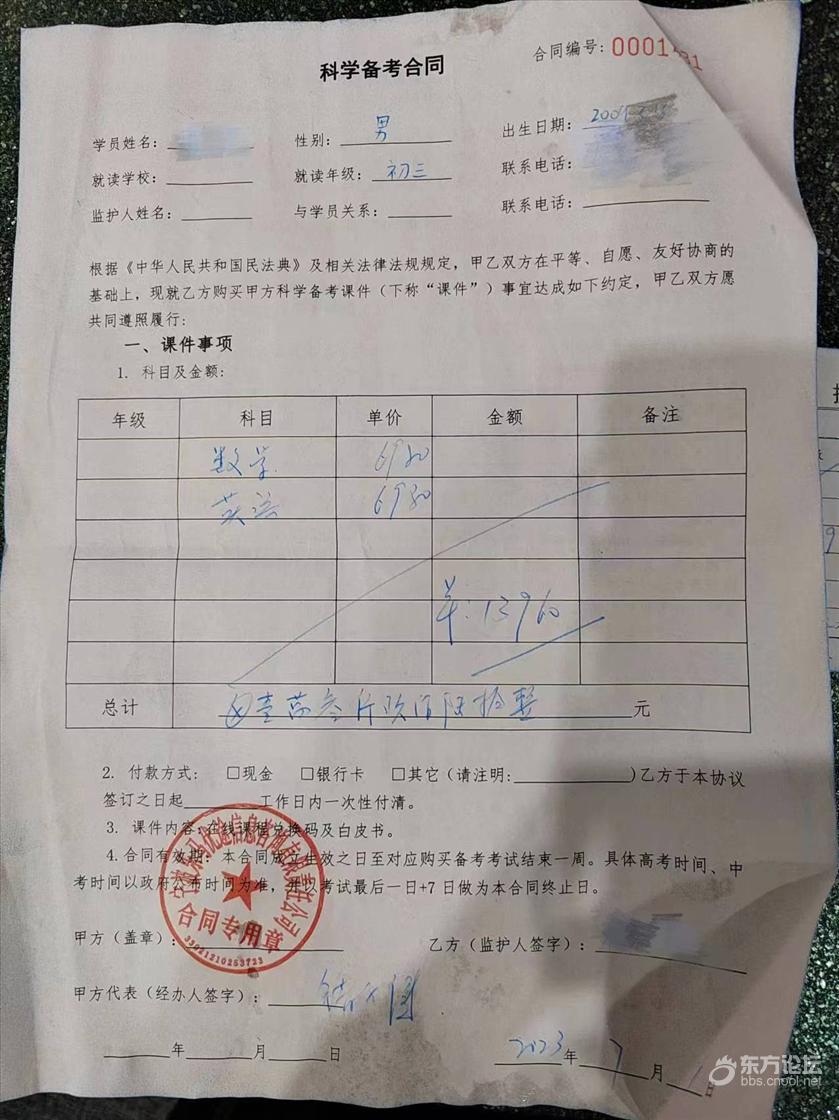 科学备考合同
合同编号: 0001
学员姓名: 性别: 男 出生日期:
就读学校: 就读年级: 初三 联系电话:
监护人姓名: 与学员关系: 联系电话:
根据《中华人民共和国民法典》及相关法律法规规定，甲乙双方在平等、自愿、友好协商的
基础上，现就乙方购买甲方科学备考课件（下称“课件”）事宜达成如下约定，甲乙双方愿
共同遵照履行:
一、课件事项
1. 科目及金额:
年级 科目 单价 金额 备注
数学 6980
英语 6980
13960
总计 壹万叁仟玖佰陆拾整 元
2. 付款方式: □现金 □银行卡 □其它（请注明: )乙方于本协议
签订之日起 工作日内一次性付清。
3. 课件内容:在线课程兑换码及白皮书。
4.合同有效期: 本合同成立生效之日至对应购买备考考试结束一周。具体高考时间、中
考时间以政府公布时间为准，并以考试最后一日+7日做为本合同终止日。
合同专用章
甲方（盖章）: 乙方（监护人签字）:
甲方代表（经办人签字）:
年 月 日 2023年 7月 日
东方论坛
bbs.cnool.net